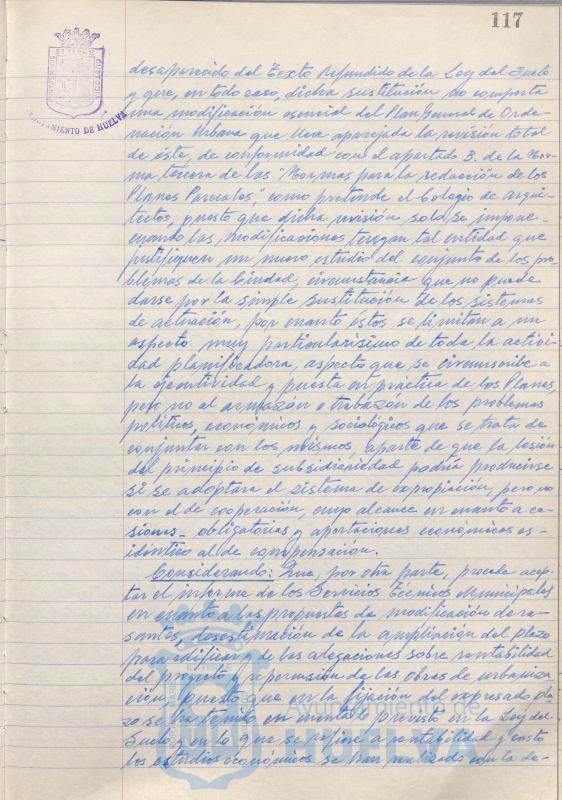 117
AYUNTAMIENTO DE HUELVA
desaparecido del Texto Refundido de la Ley del Suelo
y que, en todo caso, dicha sustitución no comporta
una modificación esencial del Plan General de Orde-
nación Urbana que lleve aparejada la revisión total
de éste, de conformidad con el apartado 3. de la Nor-
ma tercera de las "Normas para la redacción de los
Planes Parciales", como pretende el Colegio de arqui-
tectos, puesto que dicha revisión, solo se impone
cuando las modificaciones tengan tal entidad que
justifiquen un nuevo estudio del conjunto de los pro-
blemas de la Ciudad, circunstancia que no puede
darse por la simple sustitución de los sistemas
de actuación, por cuanto éstos se limitan a un
aspecto muy particularísimo de toda la activi-
dad planificadora, aspecto que se circunscribe a
la ejecutividad y puesta en práctica de los Planes,
pero no al armazón o trabazón de los problemas
políticos, económicos y sociológicos que se trata de
conjuntar con los mismos, aparte de que la lesión
del principio de subsidiariedad podría producirse
si se adoptara el sistema de expropiación, pero no
con el de cooperación, cuyo alcance en cuanto a ce-
siones obligatorias y aportaciones económicas es
idéntico al de compensación.
Considerando: Que, por otra parte, procede acep-
tar el informe de los Servicios Técnicos Municipales
en cuanto a las propuestas de modificación de
desestimación de la ampliación del plazo
para edificar y de las alegaciones sobre rentabilidad
del proyecto y repercusión de las obras de urbaniza-
ción, puesto que en la fijación del expresado pla-
zo se ha tenido en cuenta lo previsto en la Ley del
Suelo y en lo que se refiere a rentabilidad y costo
los estudios económicos se han realizado con la de-
Ayuntamiento de
HUELVA